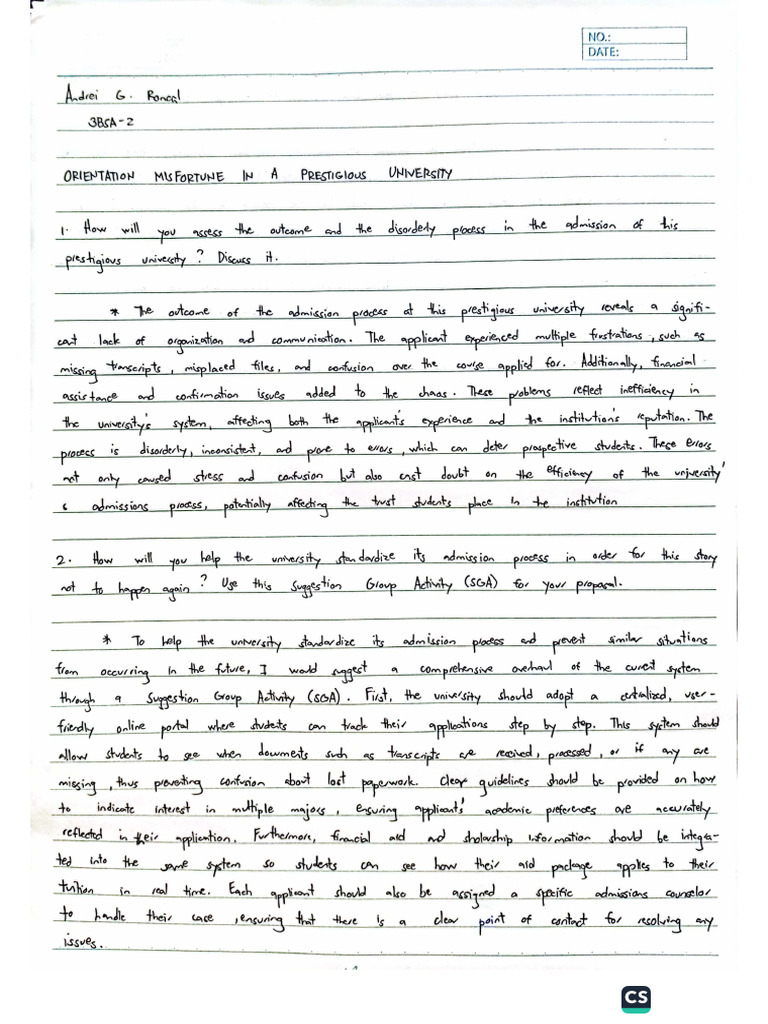 NO.:
DATE:
Andrei G. Roncal
3BSA-2
ORIENTATION MISFORTUNE IN A PRESTIGIOUS UNIVERSITY
1. How will you assess the outcome and the disorderly process in the admission of this
prestigious university? Discuss it.
* The outcome of the admission process at this prestigious university reveals a signifi-
cant lack of organization and communication. The applicant experienced multiple frustrations, such as
missing transcripts, misplaced files, and confusion over the course applied for. Additionally, financial
assistance and confirmation issues added to the chaos. These problems reflect inefficiency in
the university's system, affecting both the applicant's experience and the institution's reputation. The
process is disorderly, inconsistent, and prone to errors, which can deter prospective students. These errors
not only caused stress and confusion but also cast doubt on the efficiency of the university'
s admissions process, potentially affecting the trust students place in the institution
2. How will you help the university standardize its admission process in order for this story
not to happen again? Use this Suggestion Group Activity (SGA) for your proposal.
* To help the university standardize its admission process and prevent similar situations
from occurring in the future, I would suggest a comprehensive overhaul of the current system
through a Suggestion Group Activity (SGA). First, the university should adopt a centralized, user-
friendly online portal where students can track their applications step by step. This system should
allow students to see when documents such as transcripts are received, processed, or if any are
missing, thus preventing confusion about lost paperwork. Clear guidelines should be provided on how
to indicate interest in multiple majors, ensuring applicant's academic preferences are accurately
reflected in their application. Furthermore, financial aid and sholarship information should be integra-
ted into the same system so students can see how their aid package applies to their
tuition in real time. Each applicant should also be assigned a specific admissions counselor
to handle their case, ensuring that there is a clear point of contact for resolving any
issues.
CS